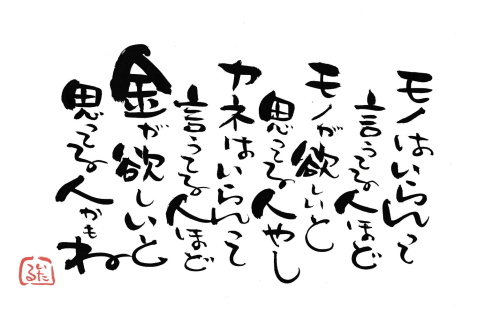 モノはいらんって
言うてる人ほど
モノが欲しいと
思ってる人やし
カネはいらんって
言うてる人ほど
金が欲しいと
思ってる人かもね
いたる